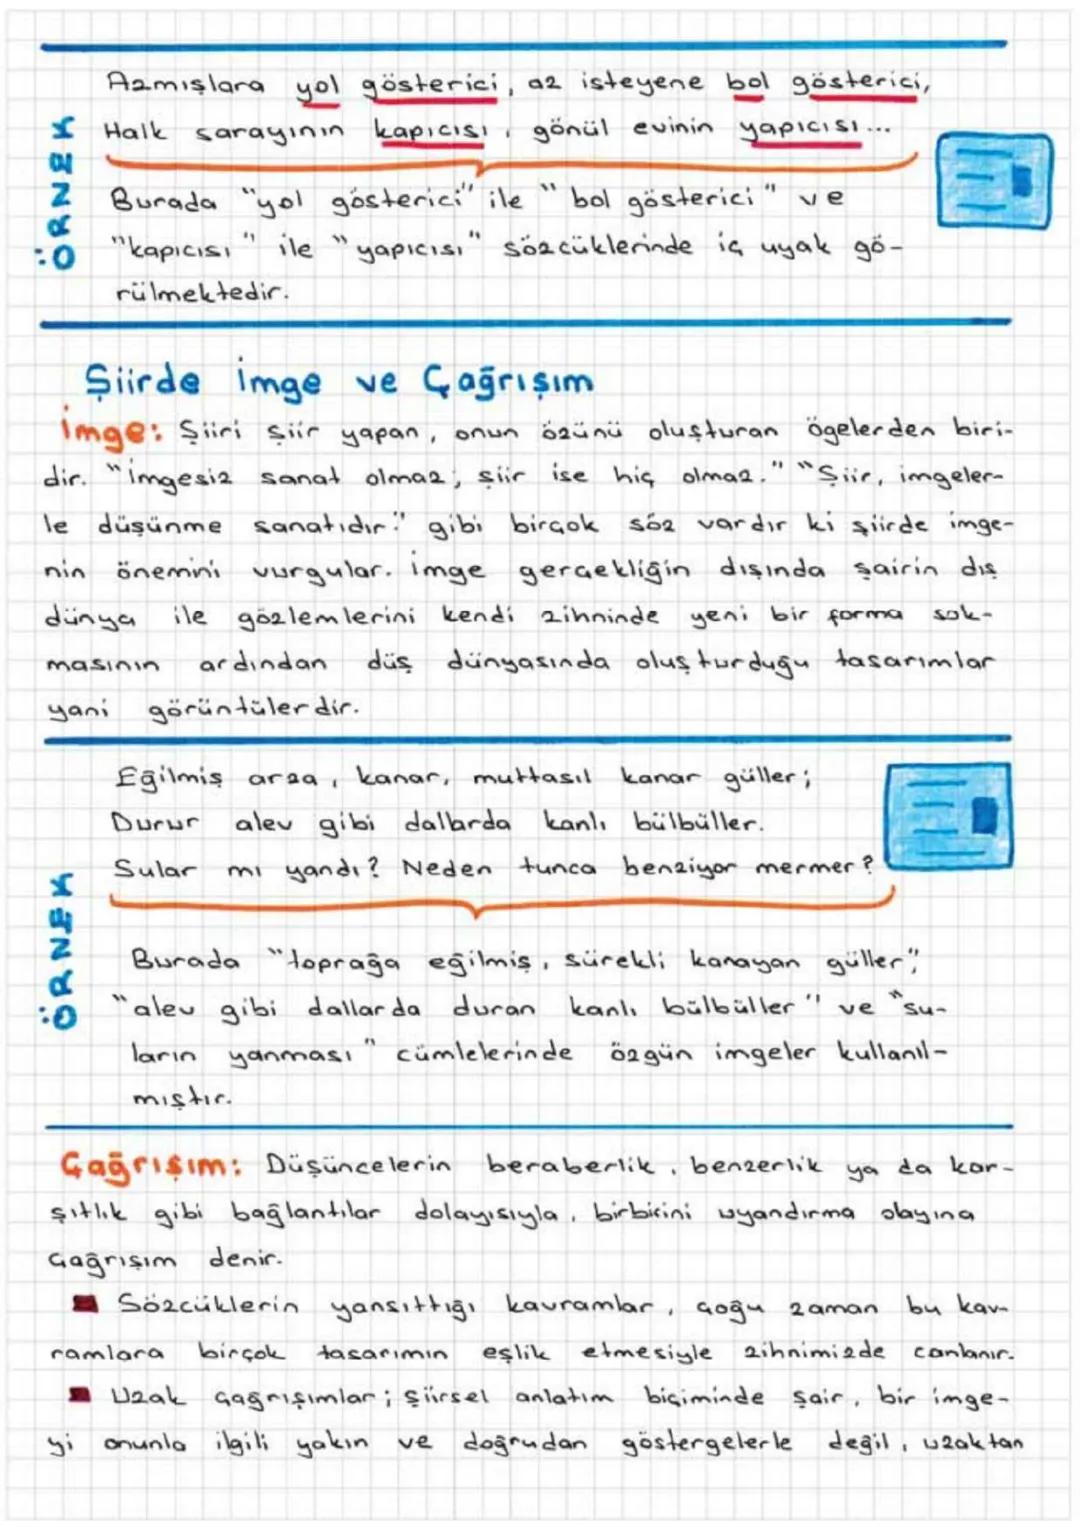 Azmışlara yol gösterici, az isteyene bol gösterici,
Halk sarayının kapıcısı, gönül evinin yapıcısı...
ÖRNEK
Burada "yol gösterici" ile "bol gösterici" ve
"kapıcısı" ile "yapıcısı" sözcüklerinde iç uyak gö-
rülmektedir.
Şiirde İmge ve Çağrışım
İmge: Şiiri şiir yapan, onun özünü oluşturan ögelerden biri-
dir. "İmgesiz sanat olmaz; şiir ise hiç olmaz." "Şiir, imgeler-
le düşünme sanatıdır." gibi birçok söz vardır ki şiirde imge-
nin önemini vurgular. İmge gerçekliğin dışında şairin dış
dünya ile gözlemlerini kendi zihninde yeni bir forma sok-
masının ardından düş dünyasında oluşturduğu tasarımlar
yani görüntülerdir.
Eğilmiş arza, kanar, muttasıl kanar güller;
Durur alev gibi dallarda kanlı bülbüller.
Sular mı yandı? Neden tunca benziyor mermer?
ÖRNEK
Burada "toprağa eğilmiş, sürekli kanayan güller",
"alev gibi dallarda duran kanlı bülbüller" ve "su-
ların yanması" cümlelerinde özgün imgeler kullanıl-
mıştır.
Çağrışım: Düşüncelerin beraberlik, benzerlik ya da kar-
şıtlık gibi bağlantılar dolayısıyla, birbirini uyandırma olayına
çağrışım denir.
Sözcüklerin yansıttığı kavramlar, çoğu zaman bu kav-
ramlara birçok tasarımın eşlik etmesiyle zihnimizde canlanır.
Uzak çağrışımlar; şiirsel anlatım biçiminde şair, bir imge-
yi onunla ilgili yakın ve doğrudan göstergelerle değil, uzaktan